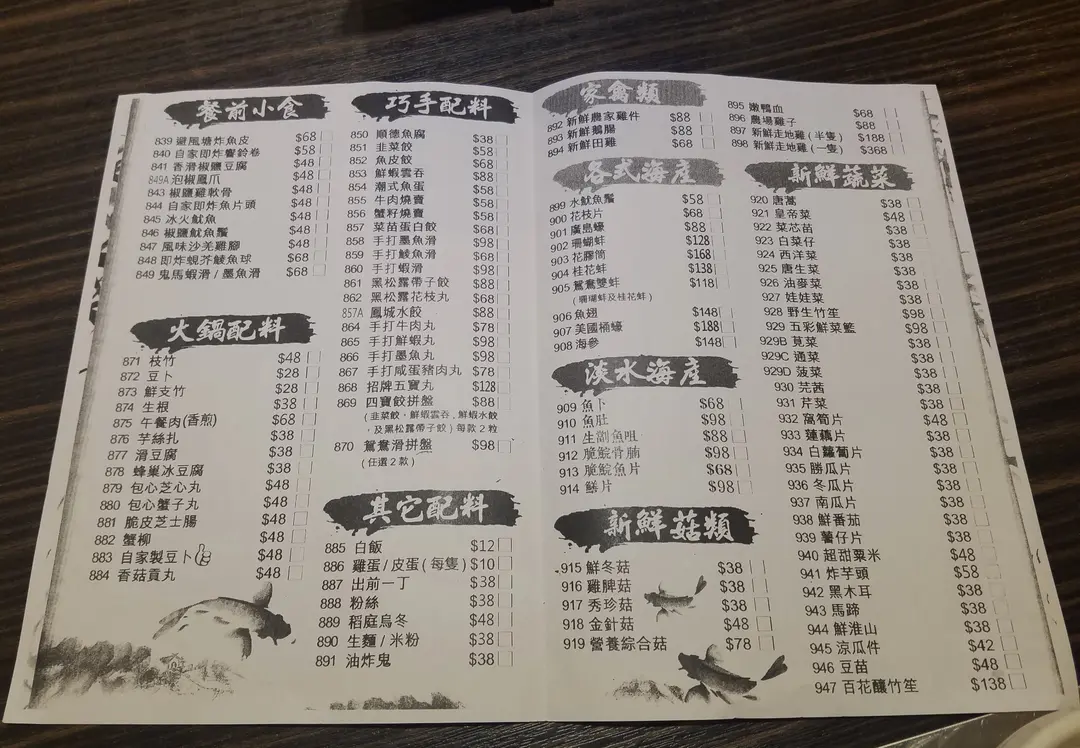 餐前小食
839 避風塘炸魚皮 $68
840 自家即炸響鈴卷 $58
841 香滑椒鹽豆腐 $48
849A 泡椒鳳爪 $48
843 椒鹽雞軟骨 $48
844 自家即炸魚片頭 $48
845 冰火魷魚 $48
846 椒鹽魷魚鬚 $48
847 風味沙羌雞腳 $48
848 即炸蜆芥鯪魚球 $68
849 鬼馬蝦滑/墨魚滑 $68
火鍋配料
871 枝竹 $48
872 豆卜 $28
873 鮮支竹 $28
874 生根 $38
875 午餐肉(香煎) $68
876 芋絲扎 $38
877 滑豆腐 $38
878 蜂巢冰豆腐 $38
879 包心芝心丸 $48
880 包心蟹子丸 $48
881 脆皮芝士腸 $48
882 蟹柳 $48
883 自家製豆卜 $48
884 香菇貢丸 $48
巧手配料
850 順德魚腐 $38
851 韭菜餃 $58
852 魚皮餃 $68
853 鮮蝦雲吞 $88
854 潮式魚蛋 $58
855 牛肉燒賣 $58
856 蟹籽燒賣 $58
857 菜苗蛋白餃 $68
858 手打墨魚滑 $98
859 手打鯪魚滑 $68
860 手打蝦滑 $98
861 黑松露帶子餃 $88
862 黑松露花枝丸 $68
857A 鳳城水餃 $88
864 手打牛肉丸 $78
865 手打鮮蝦丸 $98
866 手打墨魚丸 $98
867 手打咸蛋豬肉丸 $78
868 招牌五寶丸 $128
869 四寶餃拼盤 $88
(韭菜餃,鮮蝦雲吞,鮮蝦水餃
,及黑松露帶子餃)每款2粒
870 鴛鴦滑拼盤 $98
(任選2款)
其它配料
885 白飯 $12
886 雞蛋/皮蛋(每隻) $10
887 出前一丁 $38
888 粉絲 $38
889 稻庭烏冬 $48
890 生麵/米粉 $38
891 油炸鬼 $38
家禽類
892 新鮮農家雞件 $88
893 新鮮鵝腸 $88
894 新鮮田雞 $68
895 嫩鴨血 $68
896 農場雞子 $88
897 新鮮走地雞(半隻) $188
898 新鮮走地雞(一隻) $368
各式海産
899 水魷魚鬚 $58
900 花枝片 $68
901 廣島蠔 $88
902 珊瑚蚌 $128
903 花膠筒 $168
904 桂花蚌 $138
905 鴛鴦雙蚌 $118
(珊瑚蚌及桂花蚌)
906 魚翅 $148
907 美國桶蠔 $188
908 海參 $148
淡水海産
909 魚卜 $68
910 魚肚 $98
911 生劏魚咀 $88
912 脆鯇骨腩 $98
913 脆鯇魚片 $68
914 鱔片 $98
新鮮菇類
915 鮮冬菇 $38
916 雞脾菇 $38
917 秀珍菇 $38
918 金針菇 $48
919 營養綜合菇 $78
新鮮蔬菜
920 唐蒿 $38
921 皇帝菜 $48
922 菜芯苗 $38
923 白菜仔 $38
924 西洋菜 $38
925 唐生菜 $38
926 油麥菜 $38
927 娃娃菜 $38
928 野生竹笙 $98
929 五彩鮮菜籃 $98
929B 莧菜 $38
929C 通菜 $38
929D 菠菜 $38
930 芫茜 $38
931 芹菜 $38
932 窩筍片 $48
933 蓮藕片 $38
934 白蘿蔔片 $38
935 勝瓜片 $38
936 冬瓜片 $38
937 南瓜片 $38
938 鮮番茄 $38
939 薯仔片 $38
940 超甜粟米 $48
941 炸芋頭 $58
942 黑木耳 $38
943 馬蹄 $38
944 鮮淮山 $38
945 涼瓜件 $42
946 豆苗 $48
947 百花釀竹笙 $138